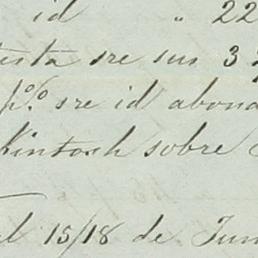 id " 22
sta sre sus 3
p% sre id abona
Kintosh sobre
l 15/18 de Jun